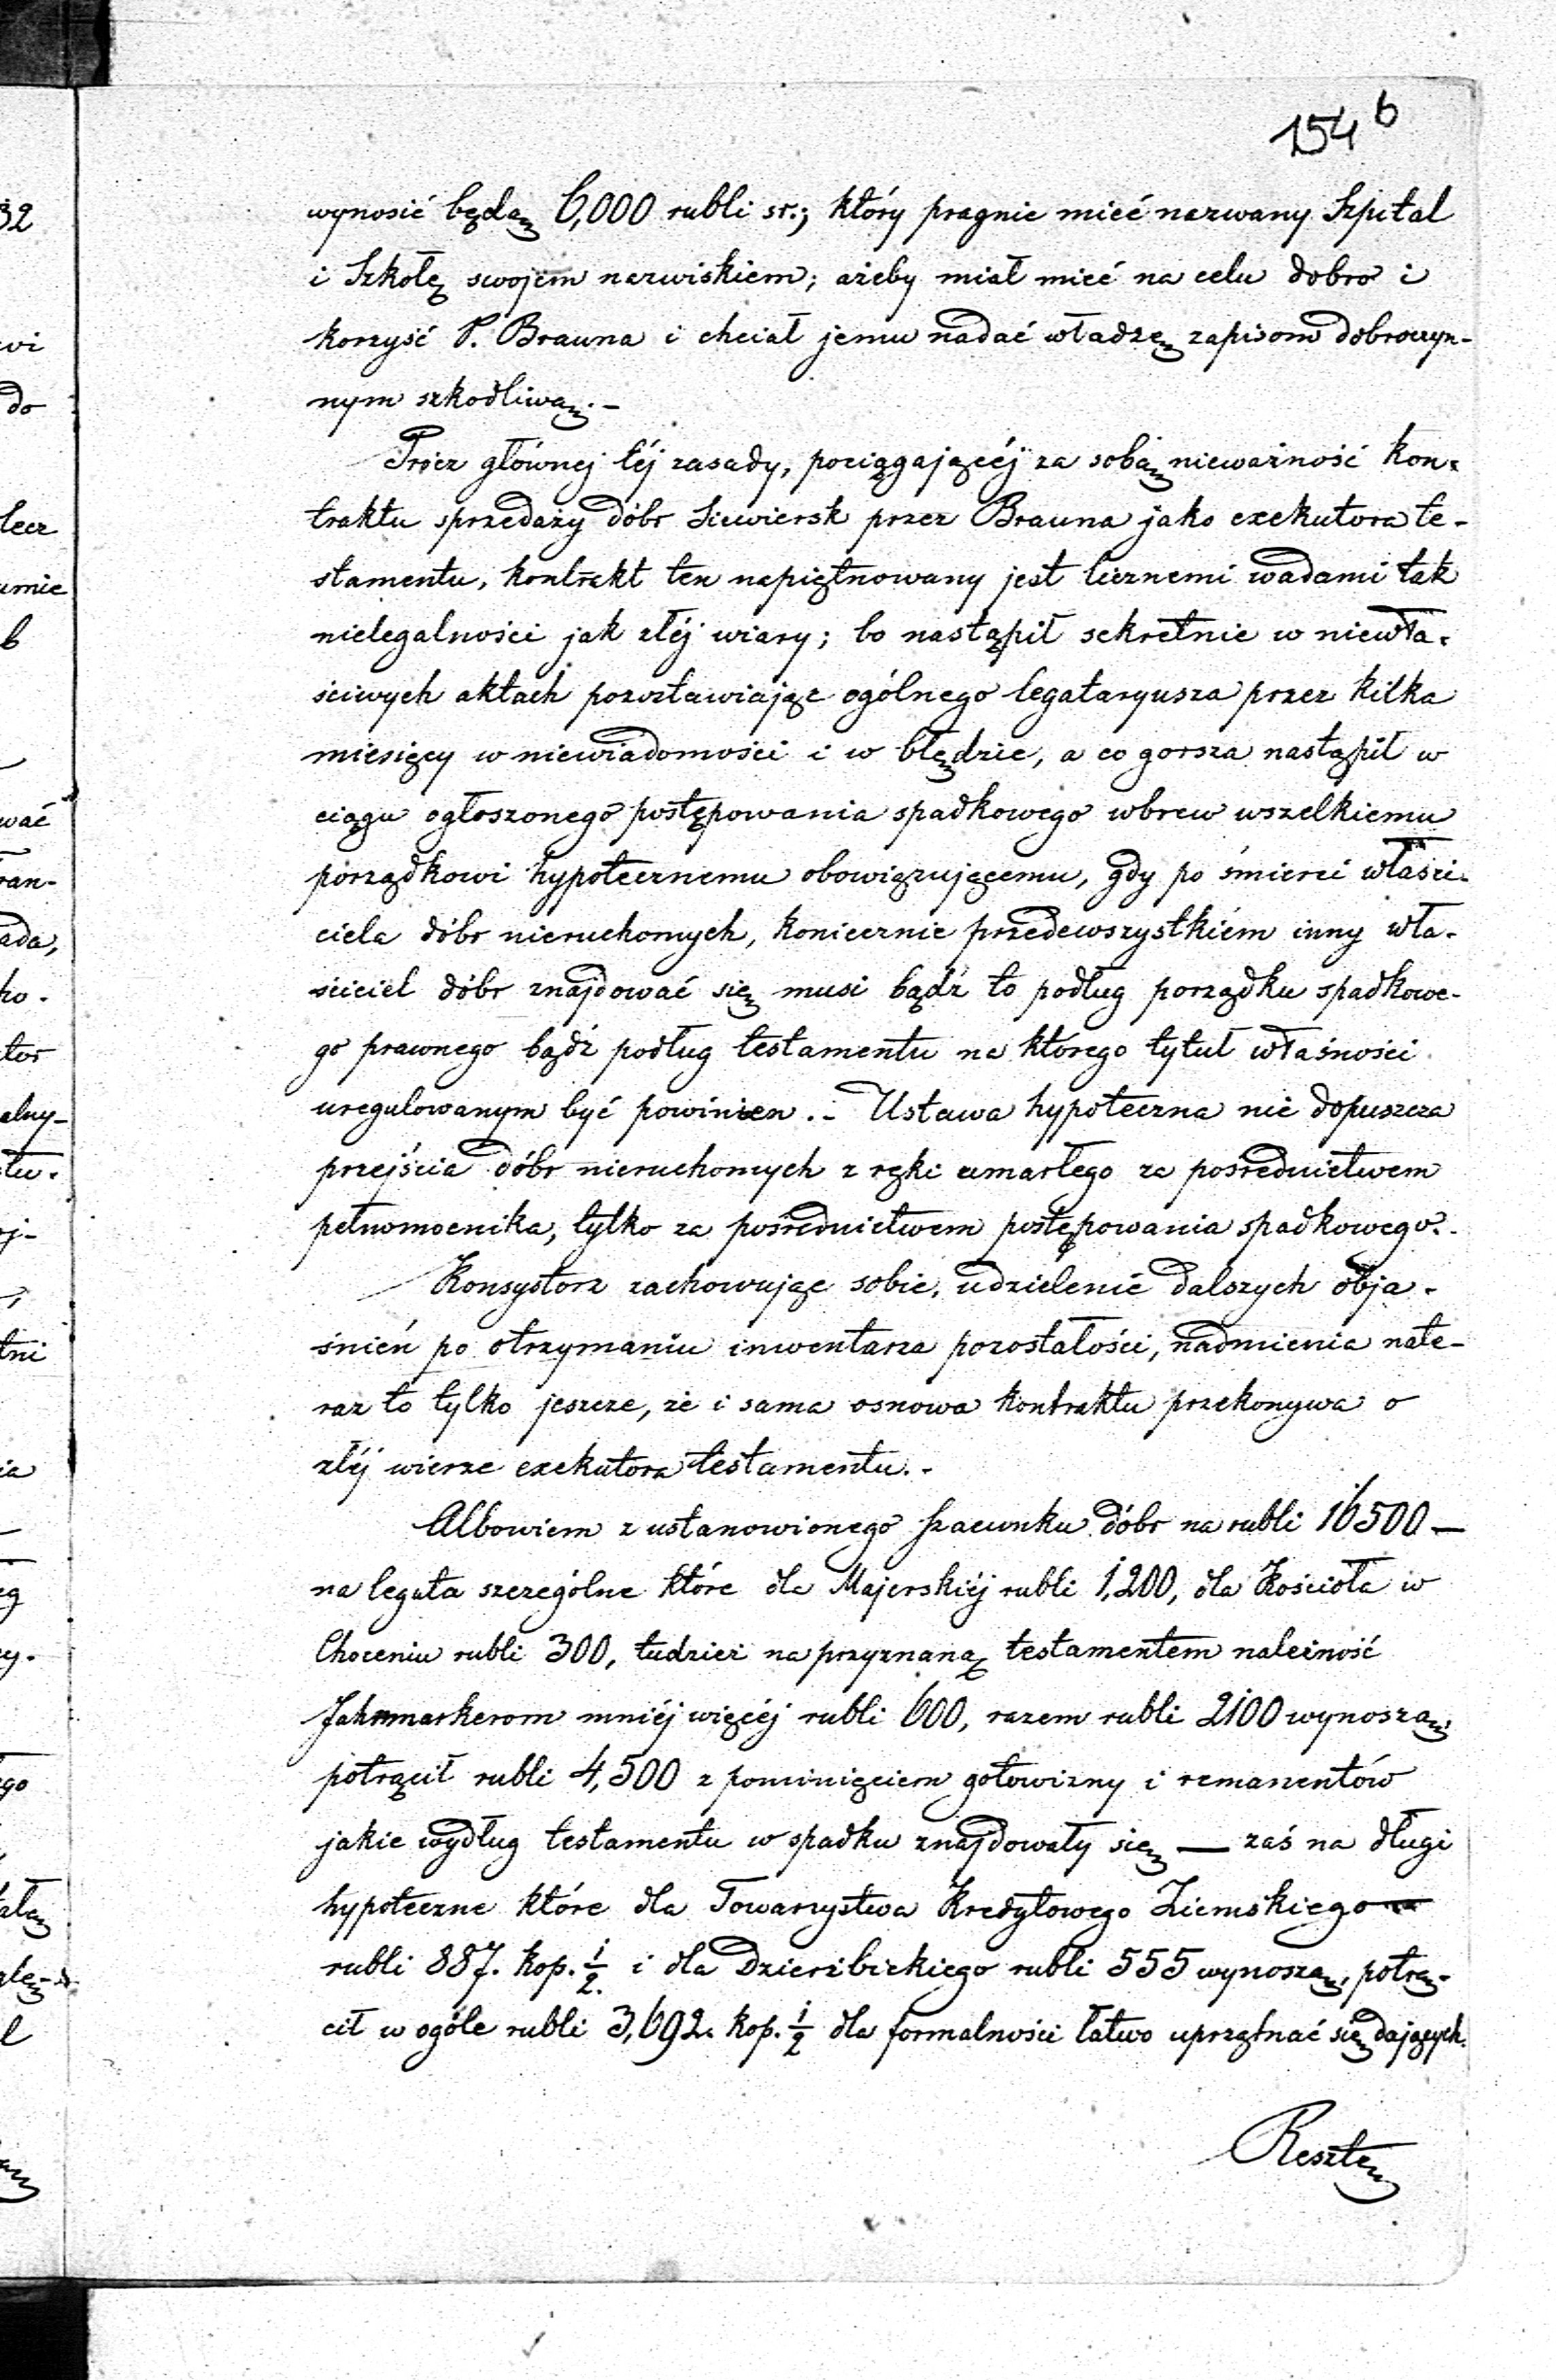 154 b
wynosić będą 6,000 rubli sr.; który pragnie mieć nazwany Szpital
i Szkołę swojem nazwiskiem; ażeby miał mieć na celu dobro i
korzyść P. Brauna i chciał jemu nadać władzę zapisom dobroczyn-
nym szkodliwą.-
Prócz głównej téj zasady, pociągającéj za sobą nieważność kon-
traktu sprzedaży dóbr Siewiersk przez Brauna jako exekutora te-
stamentu, kontrakt ten napiętnowany jest licznemi wadami tak
nielegalności jak złéj wiary; bo nastąpił sekretnie w niewła-
ściwych aktach pozostawiając ogólnego legataryusza przez kilka
miesięcy w niewiadomości i w błędzie, a co gorsza nastąpił w
ciągu ogłoszonego postępowania spadkowego wbrew wszelkiemu
porządkowi hypotecznemu obowiązującemu, gdy po śmierci właści-
ciela dóbr nieruchomych, koniecznie przedewszystkiém inny wła-
ściciel dóbr znajdować się musi bądź to podług porządku spadkowe-
go prawnego bądź podług testamentu na którego tytuł własności
uregulowanym być powinien.- Ustawa hypoteczna nie dopuszcza
przejścia dóbr nieruchomych z ręki umarłego za pośrednictwem
pełnomocnika, tylko za pośrednictwem postępowania spadkowego.-
Konsystorz zachowując sobie, udzielenie dalszych obja-
śnień po otrzymaniu inwentarza pozostałości, nadmienia nate-
raz to tylko jeszcze, że i sama osnowa kontraktu przekonywa o
złéj wierze exekutora testamentu.-
Albowiem z ustanowionego szacunku dóbr na rubli 16500 —
na legata szczególne które dla Majerskiéj rubli 1,200, dla Kościoła w
Choceniu rubli 300, tudzież na przyznaną testamentem należność
Jahnmarkerom mniéj więcéj rubli 600, razem rubli 2100 wynoszą,
potrącił rubli 4,500 z pominięciem gotowizny i remanentów
jakie wydług testamentu w spadku znajdowały się — zaś na długi
hypoteczne które dla Towarzystwa Kredytowego Ziemskiego
rubli 887. kop. ½ i dla Dzierzbickiego rubli 555 wynoszą, potrą-
cił w ogóle rubli 3,692. kop. ½ dla formalności łatwo uprzątnąć się dających.
Resztę